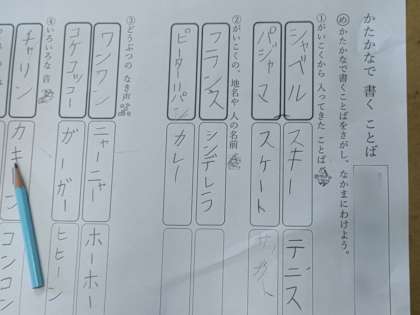 かたかなで 書く ことば
め かたかなで書くことばをさがし、なかまにわけよう。
①がいこくから 入ってきた ことば
シャベル
スキー
テニス
パジャマ
スケート
②がいこくの、地名や 人の名前
フランス
シンデレラ
ピーターパン
カレー
③どうぶつの なき声
ワンワン
ニャーニャー
ホーホー
コケコッコー
ガーガー
ヒヒーン
④いろいろな 音
チャリン
コンコン